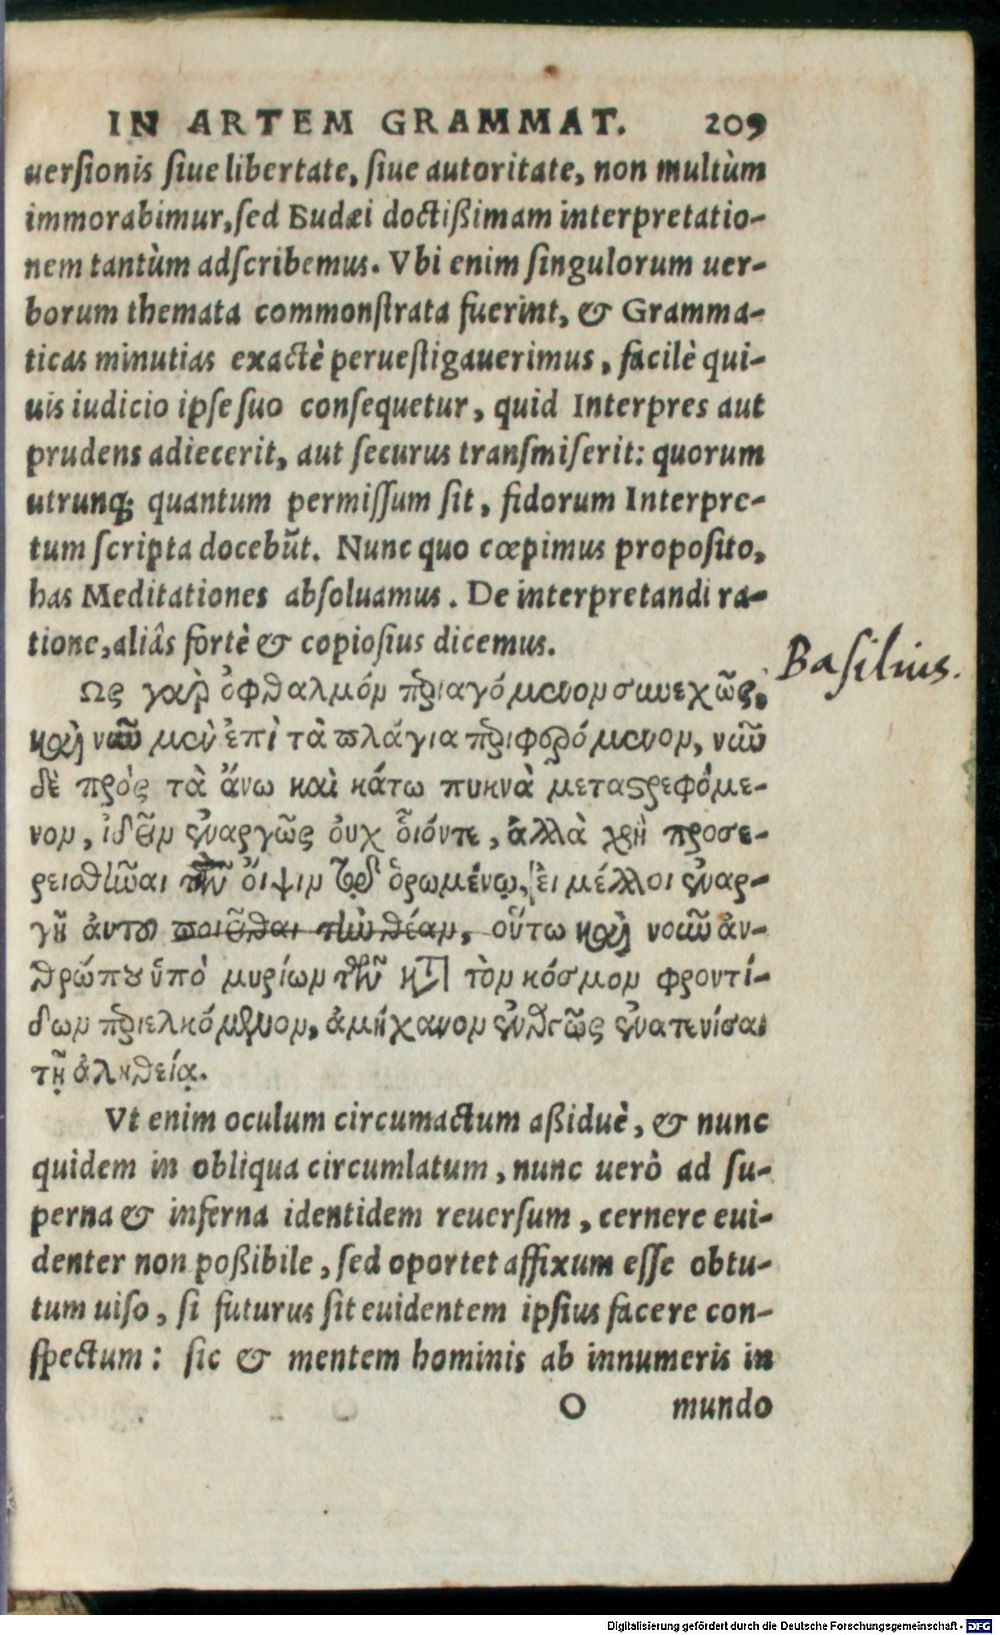 IN ARTEM GRAMMAT. 209
uersionis siue libertate, siue autoritate, non multùm
immorabimur, sed Budæi doctißimam interpretatio-
nem tantùm adscribemus. Vbi enim singulorum uer-
borum themata commonstrata fuerint, & Gramma-
ticas minutias exactè peruestigauerimus, facilè qui-
uis iudicio ipse suo consequetur, quid Interpres aut
prudens adiecerit, aut securus transmiserit: quorum
utrunq; quantum permissum sit, fidorum Interpre-
tum scripta docebũt. Nunc quo cœpimus proposito,
has Meditationes absoluamus. De interpretandi ra-
tione, aliâs fortè & copiosius dicemus.
Basilius.
Ως γαρ ὀφθαλμόν περιαγόμενον συνεχῶς,
καὶ νῦν μὲν ἐπὶ τὰ πλάγια περιφερόμενον, νῦν
δὲ πρὸς τὰ ἄνω καὶ κάτω πυκνὰ μεταστρεφόμε-
νον, ἰδεῖν ἐναργῶς ὀυχ ὁιόντε, ἀλλὰ χρὴ προσε-
ρειοθῆναι τὴν ὄιψιν τῷ ὁρωμένῳ, ἐι μέλλοι ἐναρ-
γῆ ἀυτοῦ ποιεῖσθαι τὴν θέαν, οὕτω καὶ νοῦν ἀν-
θρώπου ὑπὸ μυρίων τῶν κατὰ τὸν κόσμον φροντί-
δων περιελκόμενον, ἀμήχανον ἐνθεῶς ἐνατενίσαι
τῇ ἀληθείᾳ.
Vt enim oculum circumactum aßiduè, & nunc
quidem in obliqua circumlatum, nunc uerò ad su-
perna & inferna identidem reuersum, cernere eui-
denter non poßibile, sed oportet affixum esse obtu-
tum uiso, si futurus sit euidentem ipsius facere con-
spectum: sic & mentem hominis ab innumeris in
O mundo
Digitalisierung gefördert durch die Deutsche Forschungsgemeinschaft - DFG